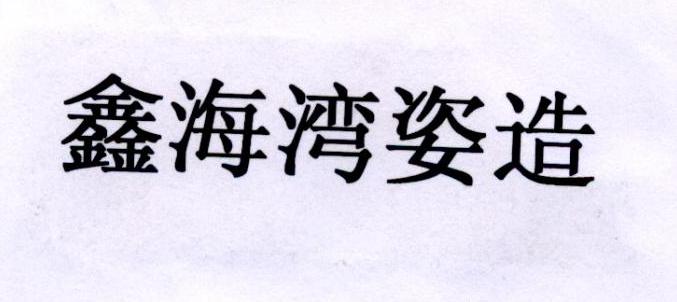 鑫海湾姿造